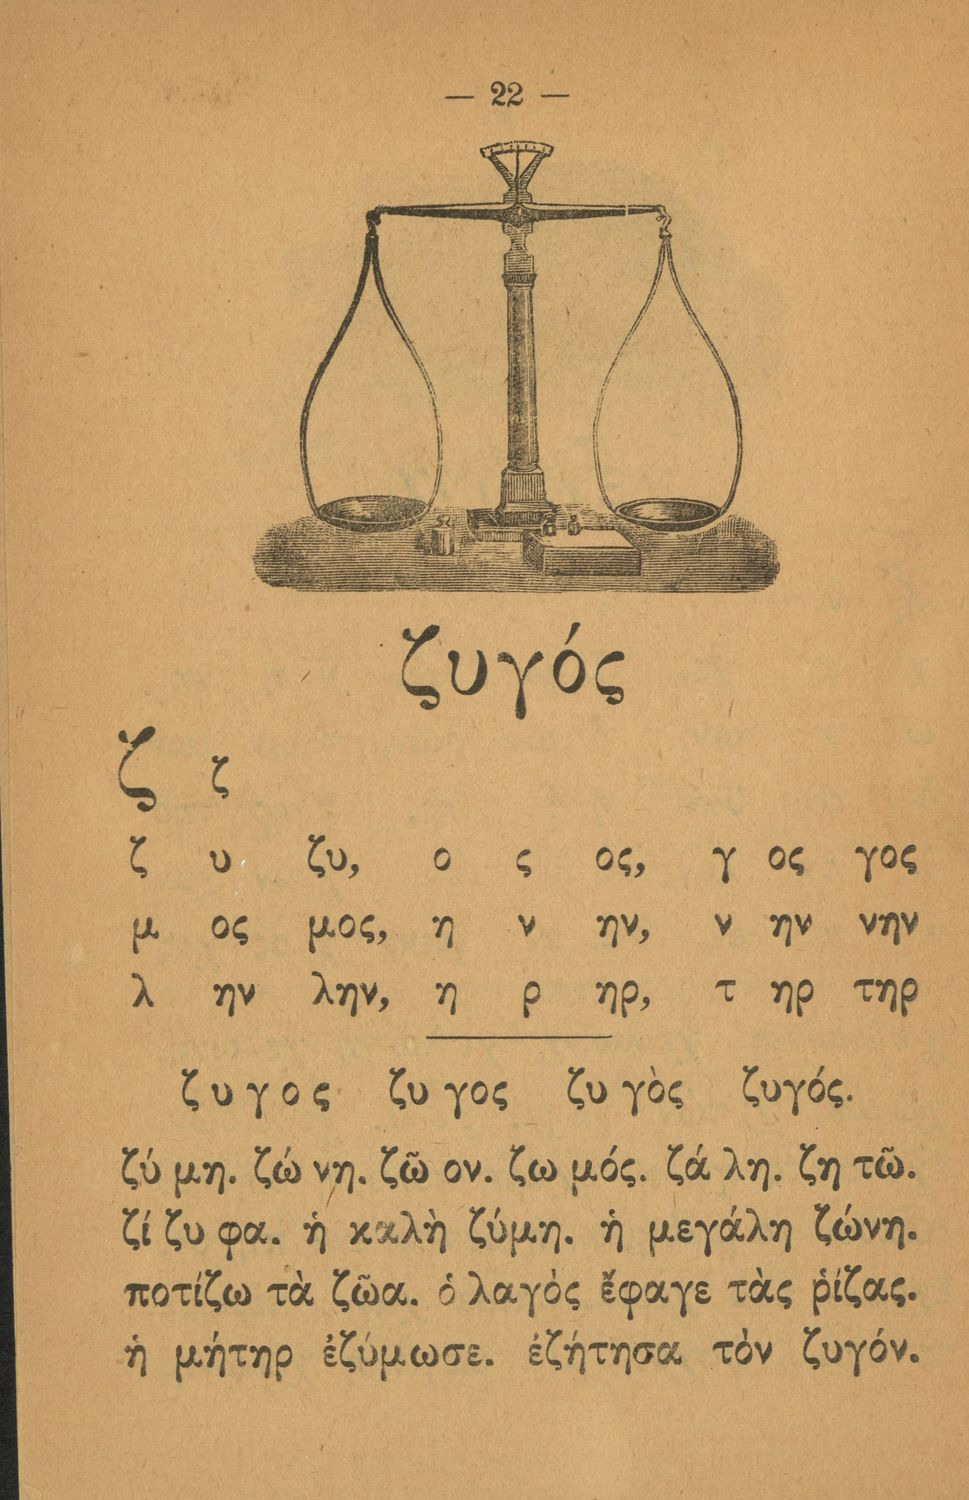 — 22 —
ζυγός
ζ ζ
ζ υ ζυ, ο ς ος, γ ος γος
μ ος μος, η ν ην, ν ην νην
λ ην λην, η ρ ηρ, τ ηρ τηρ
ζ υ γ ο ς ζυ γος ζυ γὸς ζυγός.
ζύ μη. ζώ νη. ζῶ ον. ζω μός. ζά λη. ζη τῶ.
ζί ζυ φα. ἡ καλὴ ζύμη. ἡ μεγάλη ζώνη.
ποτίζω τὰ ζῶα. ὁ λαγὸς ἔφαγε τὰς ῥίζας.
ἡ μήτηρ ἐζύμωσε. ἐζήτησα τὸν ζυγόν.